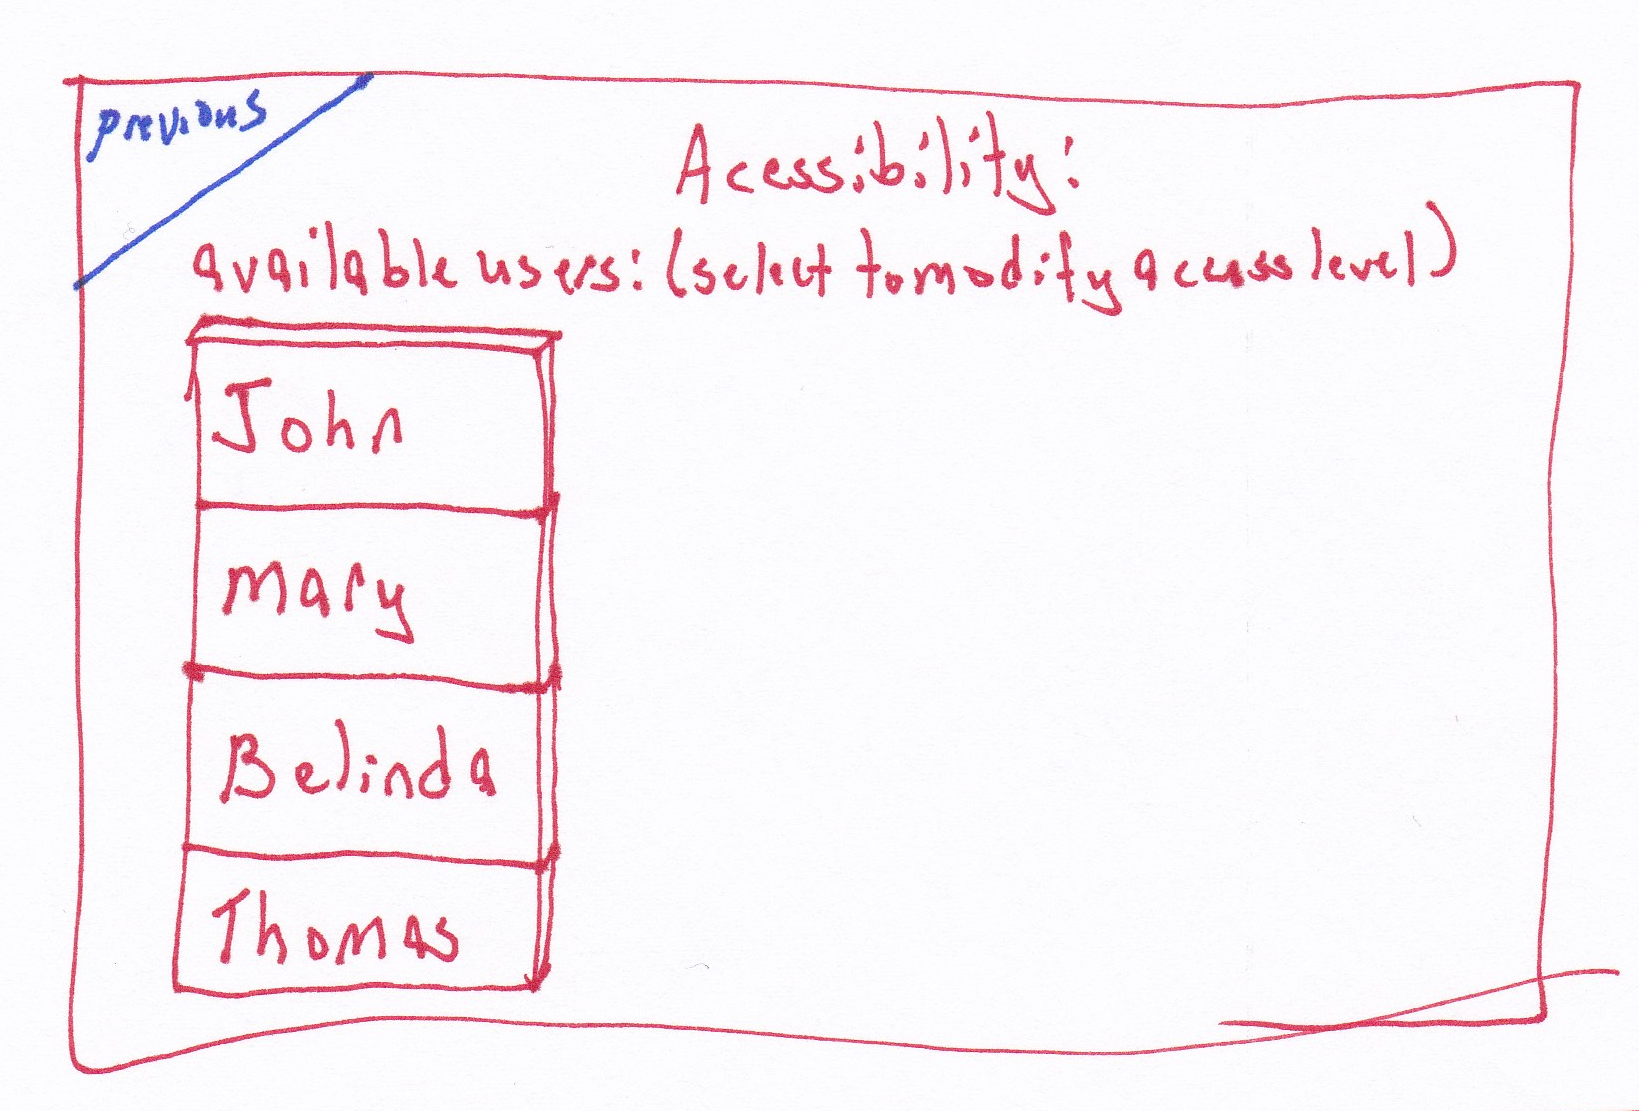 previous
Acessibility:
available users: (select to modify access level)
John
Mary
Belinda
Thomas